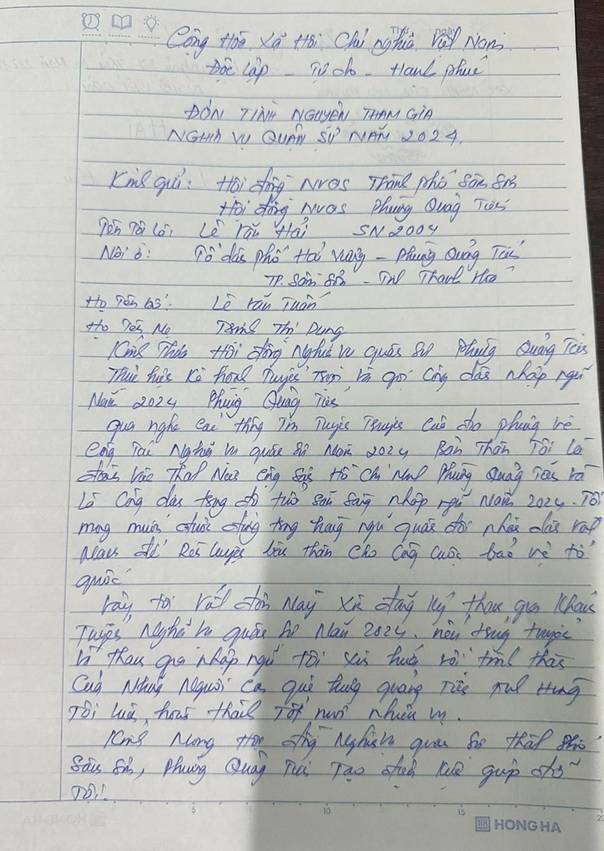 Cộng Hòa Xã Hội Chủ nghĩa Việt Nam
Độc lập - Tự do - Hạnh phúc
ĐƠN TÌNH NGUYỆN THAM GIA
NGHĨA VỤ QUÂN SỰ NĂM 2024.
Kính gửi: Hội đồng NVQS Thành phố Sầm Sơn
Hội đồng NVQS Phường Quảng Tiến
Tên Tôi là: Lê Văn Hải SN 2004
Nơi ở: Tổ dân phố Hải Vượng - Phường Quảng Tiến
TP. Sầm Sơn - Tỉnh Thanh Hoá
Họ Tên bố: Lê Văn Tuấn
Họ Tên Mẹ Thị Dung
Kính Thưa Hội đồng Nghĩa vụ quân sự Phường Quảng Tiến
Thực hiện Kế hoạch Tuyển Trọn và gọi Công dân nhập ngũ
Năm 2024 Phường Quảng Tiến
qua nghe các thông Tin Tuyên Truyền Của phường về
Công Tác Nghĩa vụ quân sự Năm 2024 Bản Thân Tôi là
đoàn viên Thanh Niên Cộng Sản Hồ Chí Minh Phường Quảng Tiến và
Là Công dân trong độ tuổi sẵn sàng nhập ngũ Năm 2024. Tôi
mong muốn được đứng trong hàng ngũ quân đội nhân dân Việt
Nam để Rèn luyện bản thân cho Công cuộc bảo vệ tổ
quốc
Vậy tôi Viết đơn Này Xin đăng ký tham gia Khám
Tuyển Nghĩa vụ quân sự Năm 2024. nếu trúng tuyển
và tham gia nhập ngũ Tôi xin hứa với tinh thần
Của Những Người Con quê hương quảng Tiến Anh Hùng
Tôi luôn hoàn thành Tốt mọi nhiệm vụ.
Kính Mong Hội đồng Nghĩa vụ quân sự thành phố
Sầm Sơn, Phường Quảng Tiến Tạo điều kiện giúp đỡ
Tôi!
5 10 15 20
HONG HA